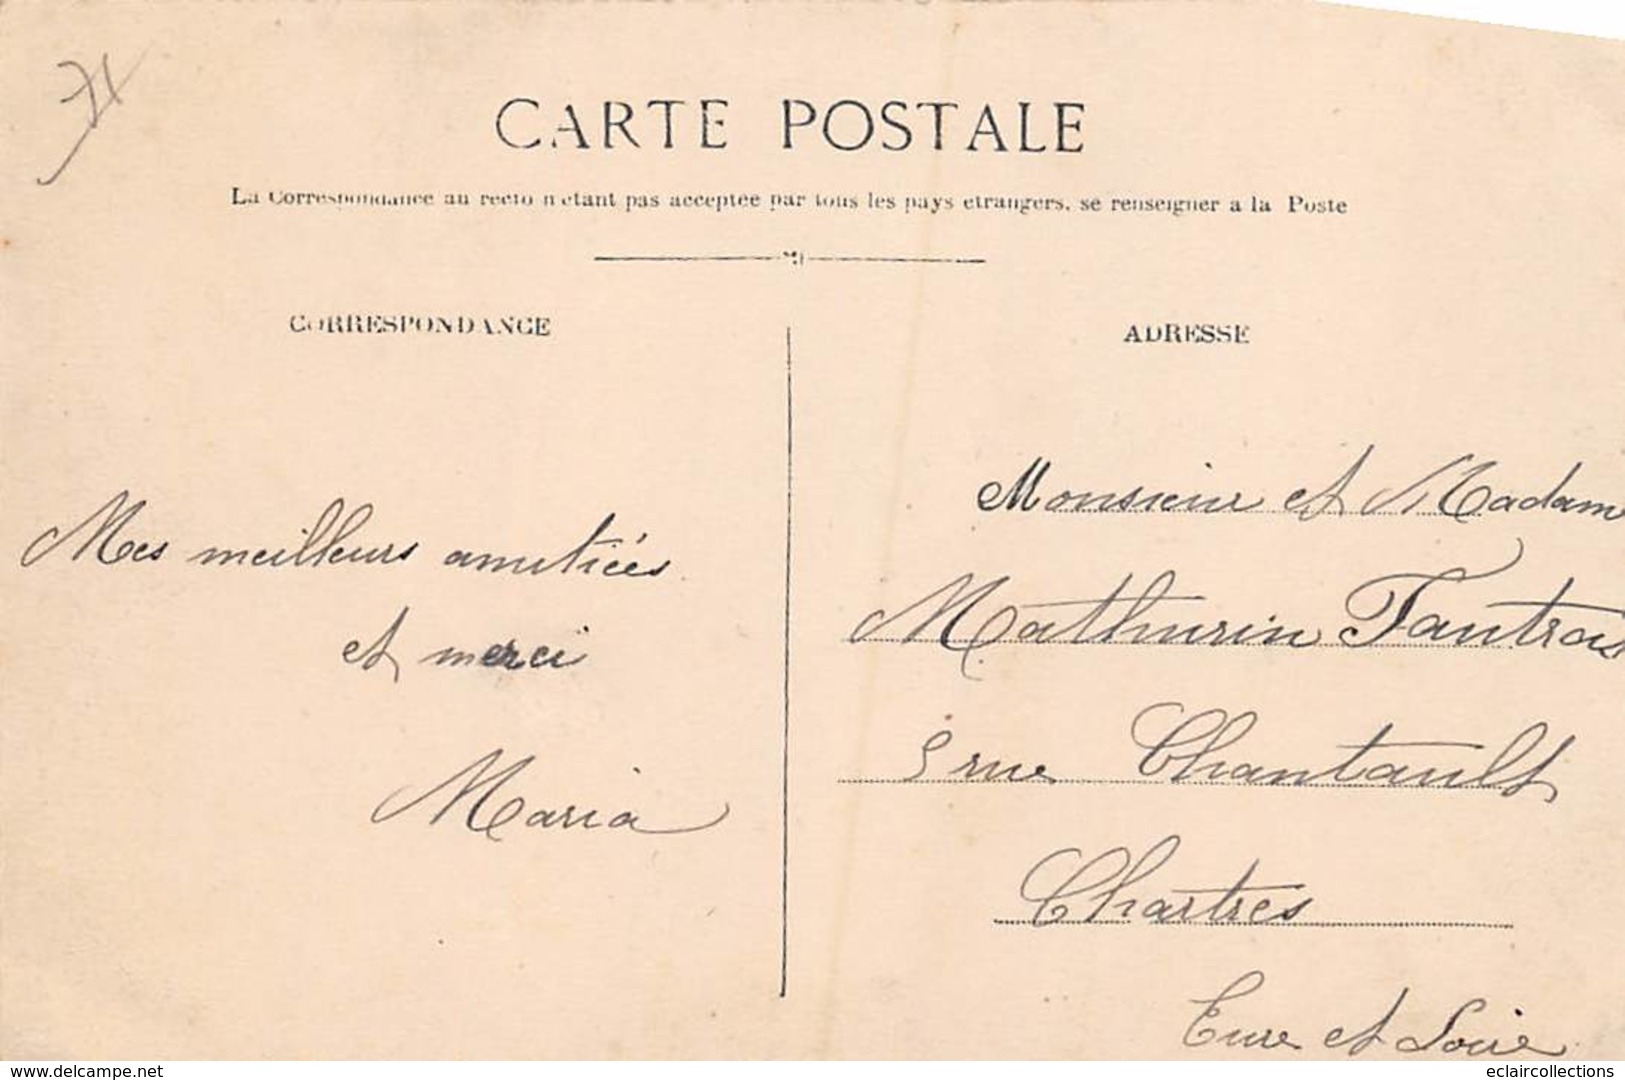 CARTE POSTALE
La Correspondance au recto n'étant pas acceptée par tous les pays étrangers, se renseigner a la Poste
CORRESPONDANCE
ADRESSE
Mes meilleurs amitiées
et merci
Maria
Monsieur et Madam
Mathurin Fautrais
5 rue Chantault
Chartres
Eure et Loire
delcampe.net
eclaircollections